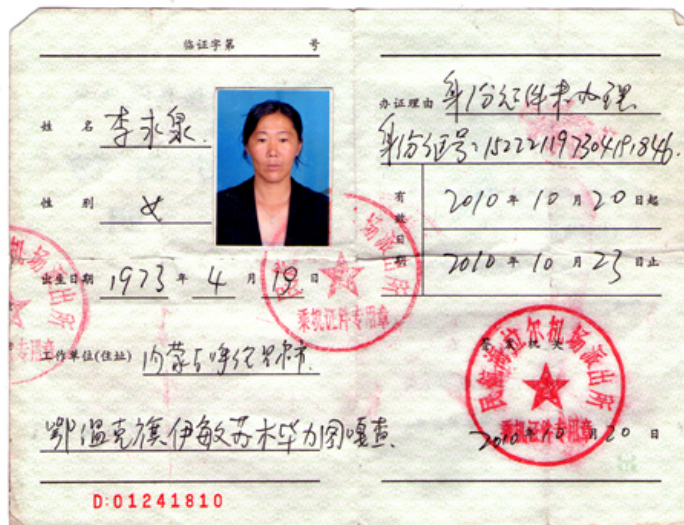 临证字第 号
姓 名 李永泉
性 别 女
出生日期 1973 年 4 月 19 日
工作单位(住址) 内蒙古呼伦贝尔市
鄂温克旗伊敏苏木毕力图嘎查
D:01241810
办证理由 身份证件未办理
身份证号:152221197304191846
有效日期 2010 年 10 月 20 日起
2010 年 10 月 23 日止
签发机关
2010 年 10 月 20 日
民航海拉尔机场派出所
乘机证件专用章
乘机证件专用章
机场派出所